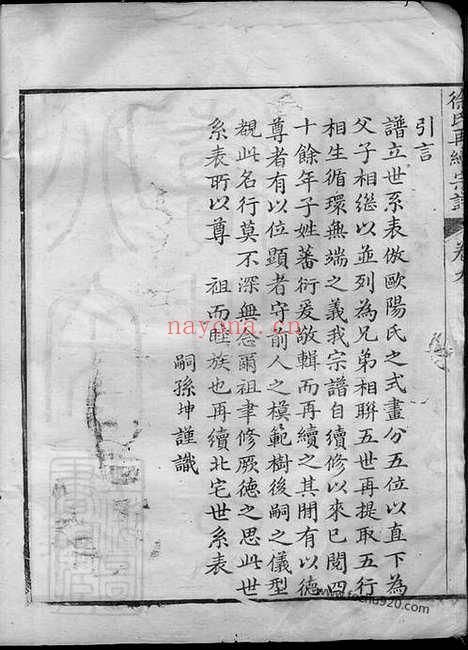 徐氏再續宗譜 卷九
引言
譜立世系表倣歐陽氏之式畫分五位以直下為
父子相継以並列為兄弟相聯五世再提取五行
相生循環無端之義我宗譜自續修以來已閱四
十餘年子姓蕃衍爰敬輯而再續之其間有以德
尊者有以位顯者守前人之模範樹後嗣之儀型
覩此名行莫不深無念爾祖聿修厥德之思此世
系表所以尊 祖而睦族也再續北宅世系表
嗣孫坤謹識
nayona.cn